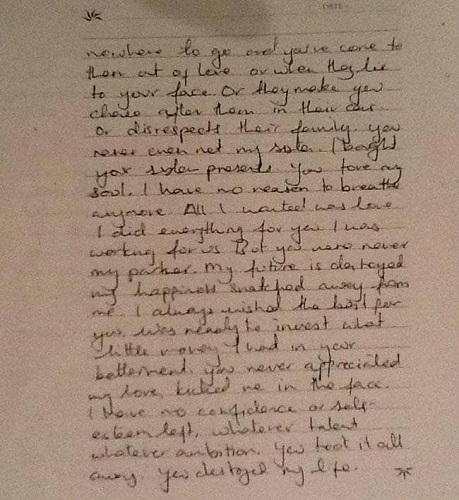 DATE
nowhere to go and you've come to
them out of love or when they lie
to your face. Or they make you
chase after them in their car.
Or disrespects their family. you
never even met my sister. I bought
your sister presents. You tore my
soul. I have no reason to breathe
anymore. All I wanted was love.
I did everything for you. I was
working for us. But you were never
my partner. My future is destroyed
my happiness snatched away from
me. I always wished the best for
you. was ready to invest what
little money I had in your
betterment. you never appreciated
my love, kicked me in the face.
I have no confidence or self-
esteem left, whatever talent
whatever ambition. You took it all
away. You destroyed my life.